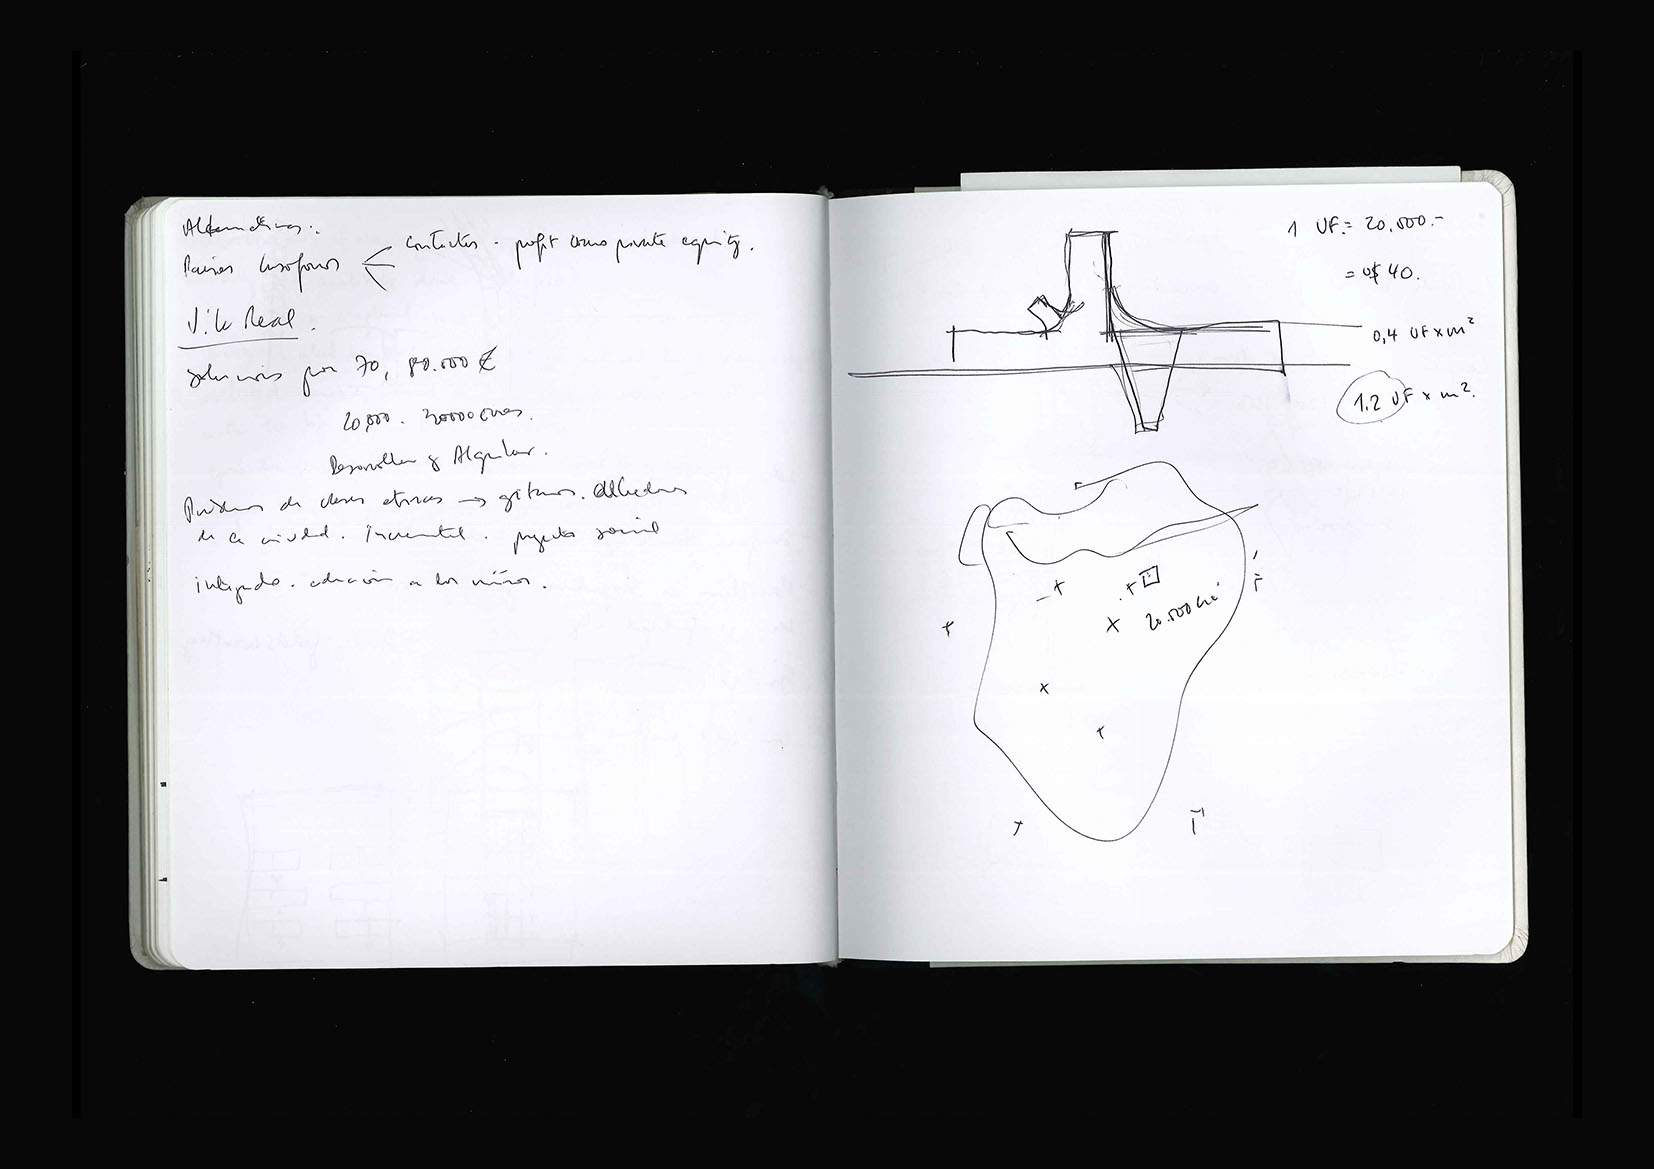 Alternativas.
Países lusófonos contactos - profit como private equity.
Vila Real.
soluciones por 70, 80.000 €
20,000. 30000 casas.
Desarrollar y Alquilar.
de clases étnicas → gitanos. Alrededores
de la ciudad. Incremental. proyecto social
integrado. educación a los niños.
1 UF = 20,000.-
= U$ 40.
0,4 UF x m²
1.2 UF x m².
20.000